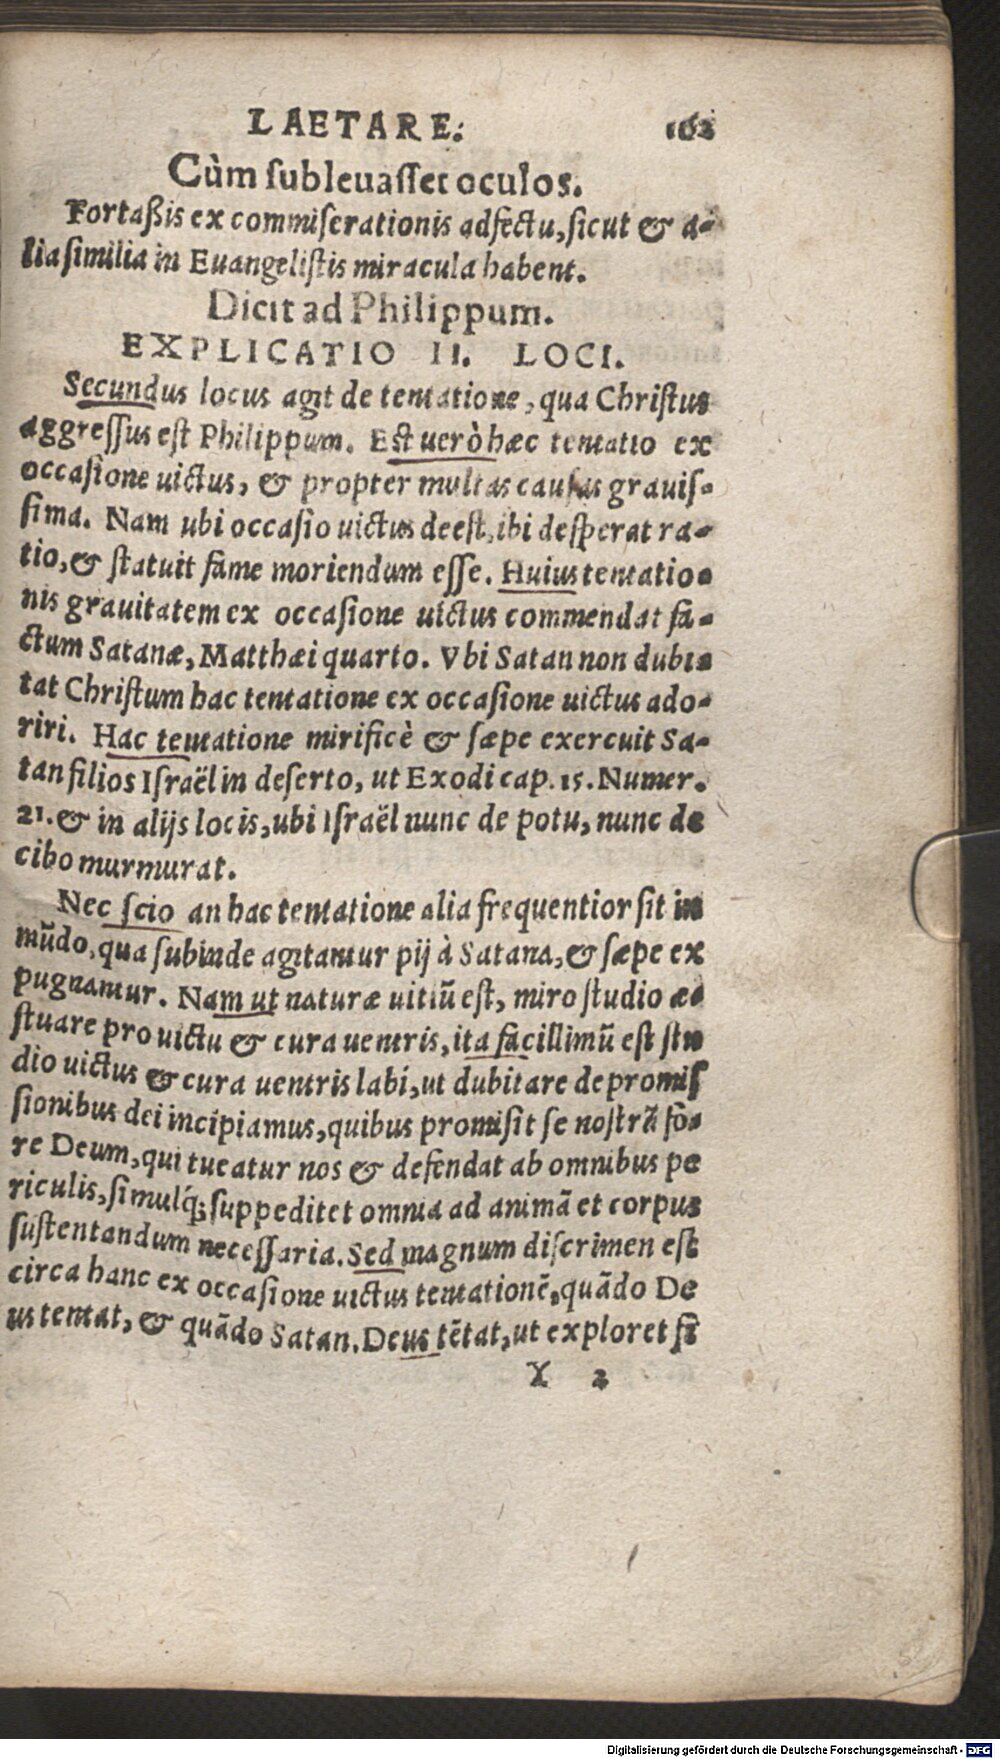 LAETARE. 162
Cùm ſubleuaſſet oculos.
Fortaßis ex commiſerationis adfectu, ſicut & a-
lia ſimilia in Euangeliſtis miracula habent.
Dicit ad Philippum.
EXPLICATIO II. LOCI.
Secundus locus agit de tentatione, qua Chriſtus
aggreſſus eſt Philippum. Eſt uerò hæc tentatio ex
occaſione uictus, & propter multas cauſas grauiſ-
ſima. Nam ubi occaſio uictus deeſt, ibi deſperat ra-
tio, & ſtatuit fame moriendum eſſe. Huius tentatio-
nis grauitatem ex occaſione uictus commendat fa-
ctum Satanæ, Matthæi quarto. Vbi Satan non dubi-
tat Chriſtum hac tentatione ex occaſione uictus ado-
riri. Hac tentatione mirificè & ſæpe exercuit Sa-
tan filios Iſraël in deſerto, ut Exodi cap. 15. Numer.
21. & in alijs locis, ubi Iſraël nunc de potu, nunc de
cibo murmurat.
Nec ſcio an hac tentatione alia frequentior ſit in
mũdo, qua ſubinde agitantur pij à Satana, & ſæpe ex
pugnantur. Nam ut naturæ uitiũ eſt, miro ſtudio æ-
ſtuare pro uictu & cura uentris, ita facillimũ eſt ſtu
dio uictus & cura uentris labi, ut dubitare de promiſ
ſionibus dei incipiamus, quibus promiſit ſe noſtrũ fo-
re Deum, qui tueatur nos & defendat ab omnibus pe
riculis, ſimulq́; ſuppeditet omnia ad animã et corpus
ſuſtentandum neceſſaria. Sed magnum diſcrimen eſt
circa hanc ex occaſione uictus tentationẽ, quãdo De
us tentat, & quãdo Satan. Deus tẽtat, ut exploret fi
Y 2
Digitalisierung gefördert durch die Deutsche Forschungsgemeinschaft - DFG